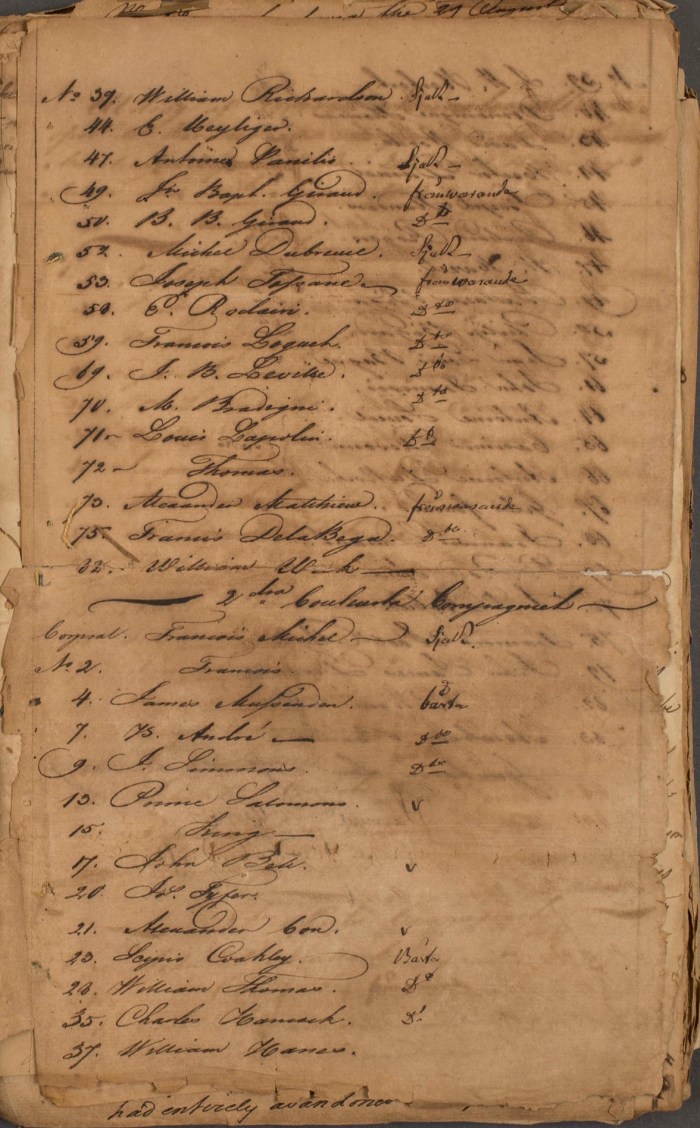 the 29 August
No 39. William Richardson. Sjælk
44. E. Heyliger.
47. Antoine Vanilis Sjælk
49. Jn Bapt. Giraud. fraværande
50. B. B. Giraud. Do
52. Michel Dubreuil. Sjælk
53. Joseph fraværande
58. P. Roclain. Dto
59. Francois Dto
69. J. B. Levitse. Dto
70. M. Bradigni. Dto
71 Louis Lapolin. Do
72 Thomas.
73. Alexander Matthiew. fraværande
75. Francis DelaBega. Dto
82. William
2dra Couleurta Compagniet
Corporal. Francois Michel Sjuk.
No 2. Francois
4. James Mussenden. borta
7. B. André Dto
9. J. Simmons. Dto
13. Prince Salomons. v
15. King
17. John Bell. v
20. Js. Tyfer.
21. Alexander Con. v
23. Scipio Coakley. Borta
28. William Thomas. Do
35. Charles Hancock. Do
37. William Hanes.
had entirely abandoned